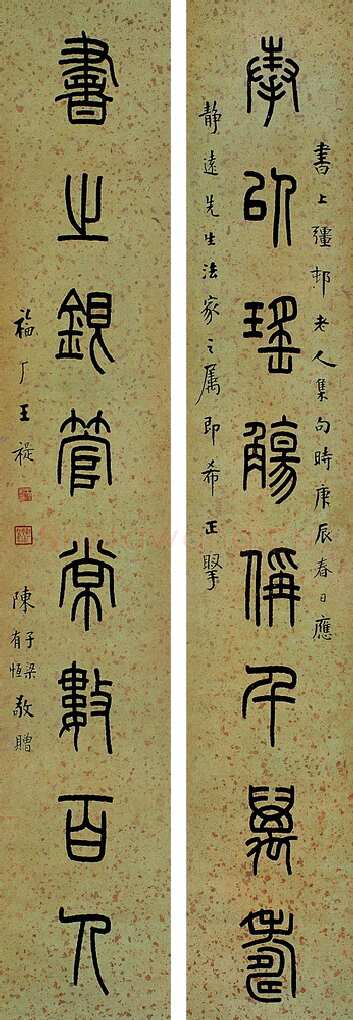 書上彊邨老人集句時庚辰春日應
奉以瑤觴偁千萬壽
靜遠先生法家之属即希正掔
書之銀管常數百人
福厂王禔
陳子梁有恆敬贈